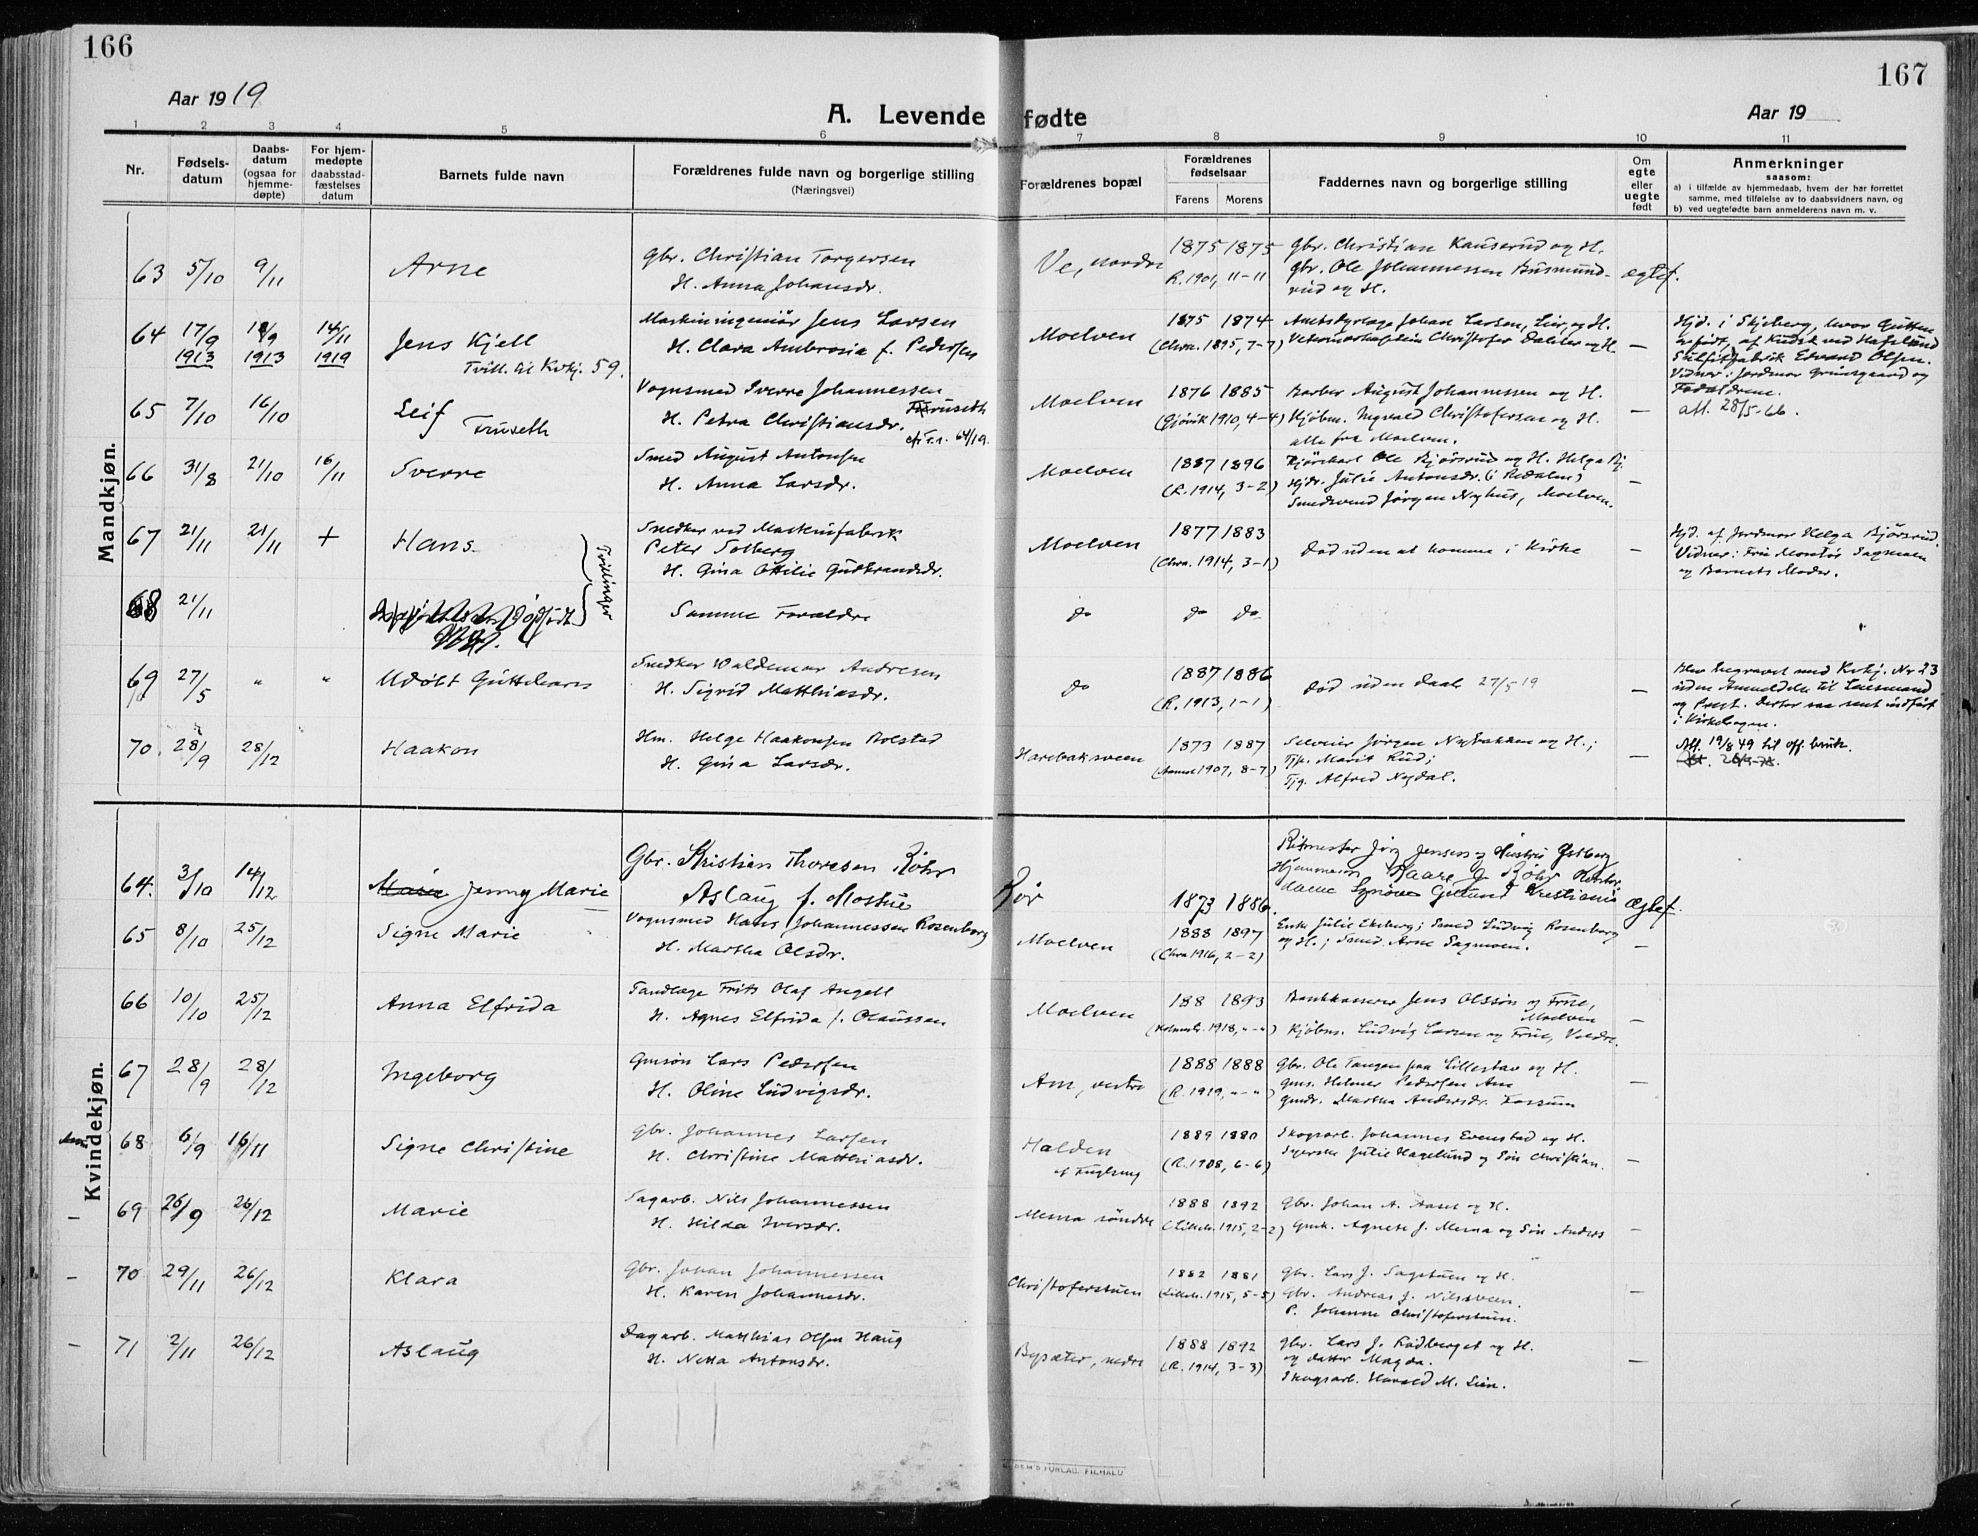 166
167
Aar 1919
Aar 19
A. Levende fødte
1 2 3 4 5 6 7 8 9 10 11
Nr.
Fødsels-
datum
Daabs-
datum
(ogsaa for
hjemme-
døpte)
For hjem-
medøpte
daabsstad-
fæstelses
datum
Barnets fulde navn
Forældrenes fulde navn og borgerlige stilling
(Næringsvei)
Forældrenes bopæl
Forældrenes
fødselsaar
Farens Morens
Faddernes navn og borgerlige stilling
Om
egte
eller
uegte
født
Anmerkninger
saasom:
a) i tilfælde av hjemmedaab, hvem der har forrettet
samme, med tilføielse av to daabsvidners navn, og
b) ved uegtefødte barn anmelderens navn m. v.
Mandkjøn.
63 5/10 9/11 Arne
Gbr. Christian Torgersen
H. Anna Johansdr.
Ve, nordre
1875 1875
(R. 1901, 11-11
Gbr. Christian Kauserud og H.
Gbr. Ole Johannessen Busmund-
rud og H.
egtef.
64 17/9 1913 18/9 1913 14/11 1919
Jens Kjell
Tvill. til Kvkj. 59.
Maskiningeniør Jens Larsen
H. Clara Ambrosia f. Pedersen
Moelven
1875 1874
(Chra. 1895, 7-7)
Amtsdyrlæge Johan Larsen, Lier, og H.
Christofer Dahler og H.
—
Hjd. i Skjeberg, hvor Gutten
er født, af Kudsk ved Hafslund
Sulfitfabrik Edvard Olsen.
Vidner: Jordmor Grimsgaard og
Forældrene.
att. 28/5-66.
65 7/10 16/10 Leif
Fruseth
Vognsmed Sverre Johannessen
Fruseth
H. Petra Christiansdr.
cfr. T.r. 64/19.
Moelven
1876 1885
(Gjøvik 1910, 4-4)
Barber August Johannessen og H.
Kjøbm. Ingvald Christofersen og H.
alle fra Moelven.
—
66 31/8 21/10 16/11 Sverre
Smed August Antonsen
H. Anna Larsdr.
Moelven
1887 1896
(R. 1914, 3-2)
Kjørekarl Ole Bjørsrud og H. Helga Bj.
Hjdr. Julie Antonsdr. (i Pedalen)
Smedsvend Jørgen Nyhus, Moelven.
—
67 21/11 21/11 + Hans
Tvillinger
Snedker ved Maskinfabrik
Peter Solberg
H. Gina Otilie Gudbrandsdr.
Moelven
1877 1883
(Chra. 1914, 3-1)
Død uden at komme i Kirke
—
Hjd. af Jordmor Helga Bjørsrud.
Vidner: Fru Montør Sagmoen
og Barnets Moder.
68 21/11
Samme Forældre
do do do
69 27/5 " " Udøbt Guttebarn
Snedker Waldemar Andresen
H. Sigrid Matthiasdr.
do
1887 1886
(R. 1913, 1-1)
Død uden daab 27/5 19
—
Blev begravet med Kvkj. Nr 23
uden Anmeldelse til Lensmand
og Prest. Derfor saa sent indført
i Kirkebogen.
70. 28/9 28/12 Haakon
Hm. Helge Haakonsen Bolstad
H. Gina Larsdr.
Harebaksveen
1873 1887
1907, 8-7)
Selveier Jørgen Nybakken og H.;
Tjp. Marit Rud;
Tjg. Alfred Nydal.
—
Att. 19/8 49 til off. bruk.
Kvindekjøn.
64. 3/10 14/12 Jenny Marie
Gbr. Kristian Thoresen Røhr
Aslaug f. Mostue
Rør
1873 1886.
Ritmester Jørg Jensen og Hustru Østberg
Hjemmeson Kaare J. Røhr
Kristiania
egtef.
65 8/10 25/12 Signe Marie
Vognsmed Hans Johannessen Rosenborg
H. Martha Olsdr.
Moelven
1888 1897
(Chra 1916, 2-2)
Enke Julie Ekeberg; Smed Ludvig Rosenborg
og H.; Smed. Arne Sagmoen.
—
66 10/10 25/12 Anna Elfrida
Tandlæge Frits Olaf Angell
H. Agnes Elfrida f. Olaussen
Moelven
188 1893
1918, "-")
Bankkasserer Jens Olssøn og Frue,
Moelven
Kjøbm. Ludvig Larsen og Frue, Veldre.
—
67 28/9 28/12 Ingeborg
Gmsøn Lars Pedersen
H. Oline Ludvigsdr.
Am, vestre
1888 1888
(R. 1919, "-")
Gbr. Ole Tangen paa Lillestav og H.
Gms. Helmer Pedersen Am
Gmdr. Martha Andersdr. Fossum
—
68 6/9 16/11 Signe Christine
Gbr. Johannes Larsen
H. Christine Matthiasdr.
Halden
af Fuglseng
1889 1880
(R. 1908, 6-6)
Skogsarb. Johannes Evenstad og H.
Syerske Julie Hagelund og Søn Christian.
—
— 69 26/9 26/12 Marie
Sagarb. Nils Johannessen
H. Hilda Iversdr.
Mesna søndre
1888 1892
(Lilleh. 1915, 2-2)
Gbr. Johan A. Aaset og H.
Gmk. Agnete J. Mesna og Søn Anders
—
— 70 29/11 26/12 Klara
Gbr. Johan Johannessen
H. Karen Johannesdr.
Christoferstuen
1882 1881
(Lilleh. 1915, 5-5)
Gbr. Lars J. Sagstuen og H.
Gbr. Andreas J. Nilsveen.
P. Johanne Christoferstuen.
—
— 71 2/11 26/12 Aslaug
Dagarb. Matthias Olsen Haug
H. Netta Antonsdr.
Bysæter, nedre
1888 1892
(R. 1914, 3-3)
Gbr. Lars J. Rødberget og H.
og datter Magda.
Skogsarb. Harald M. Lien.
—
FORLAG, FILHALD